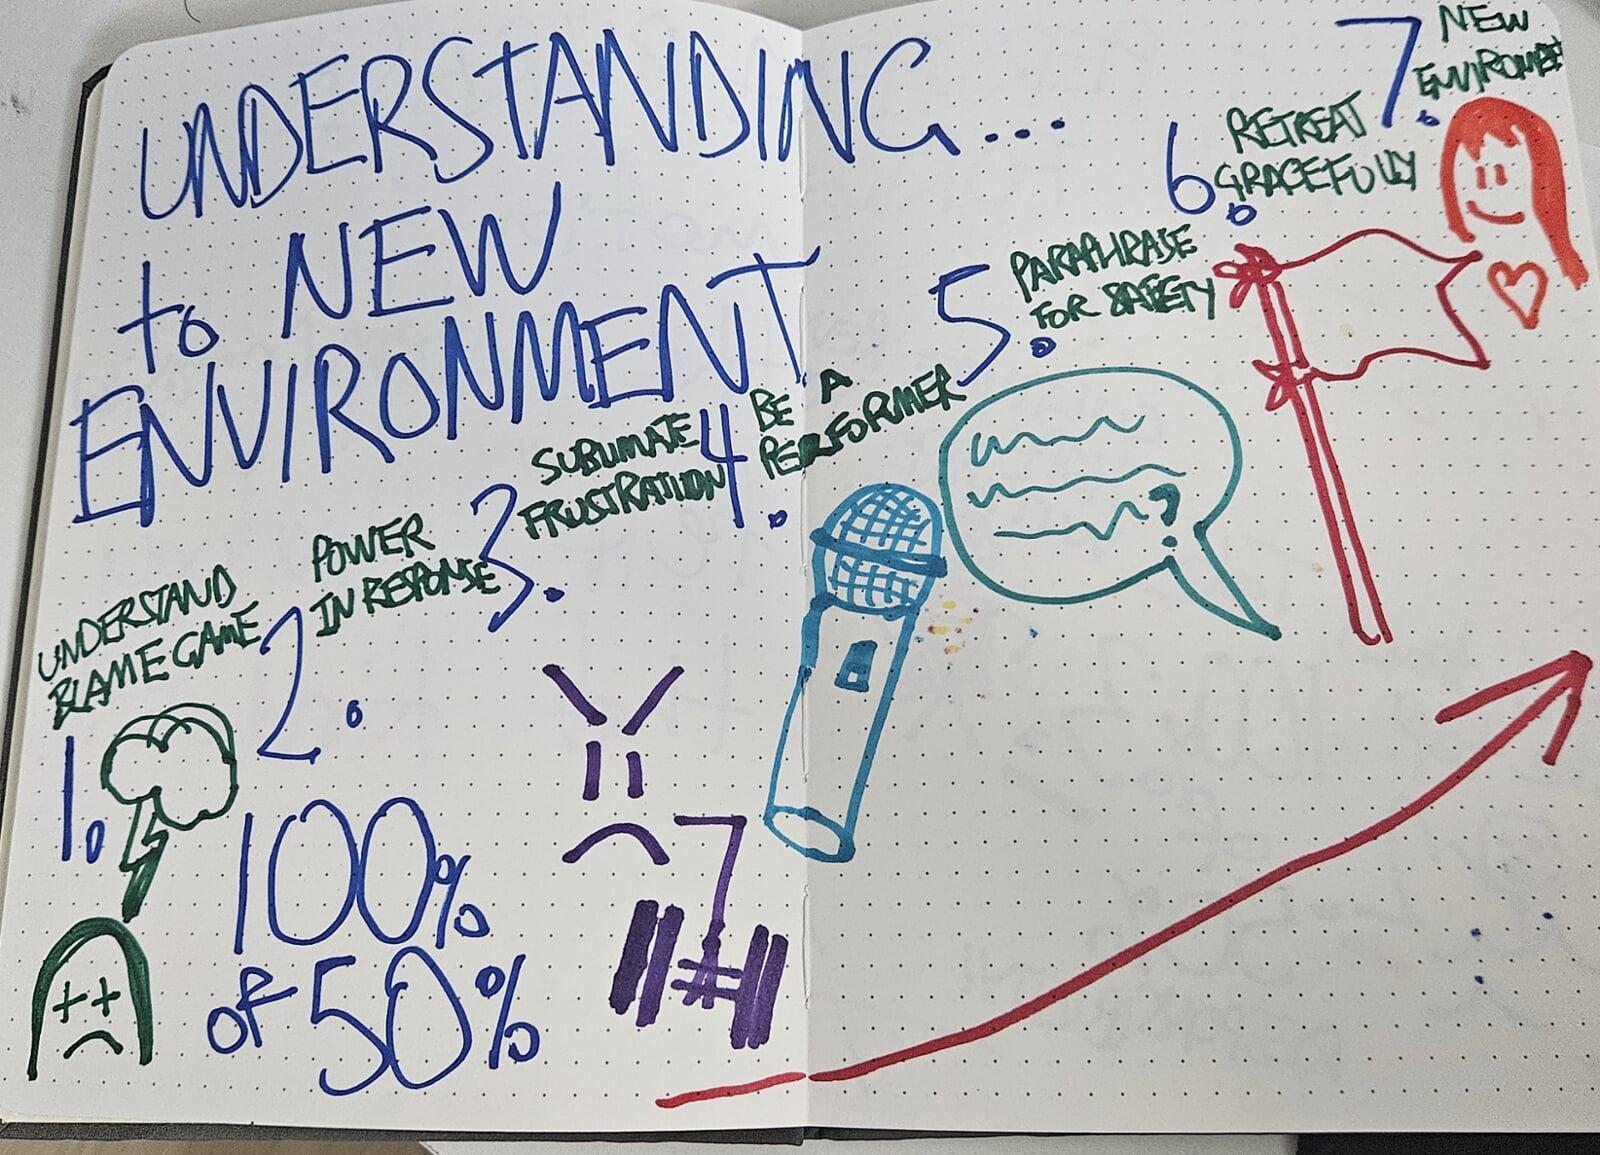 UNDERSTANDING...
to NEW
ENVIRONMENT
1.
UNDERSTAND
BLAME GAME
2.
POWER
IN RESPONSE
100%
of 50%
3.
SUBLIMATE
FRUSTRATION
4.
BE A
PERFORMER
5.
PARAPHRASE
FOR SAFETY
?
6.
RETREAT
GRACEFULLY
7.
NEW